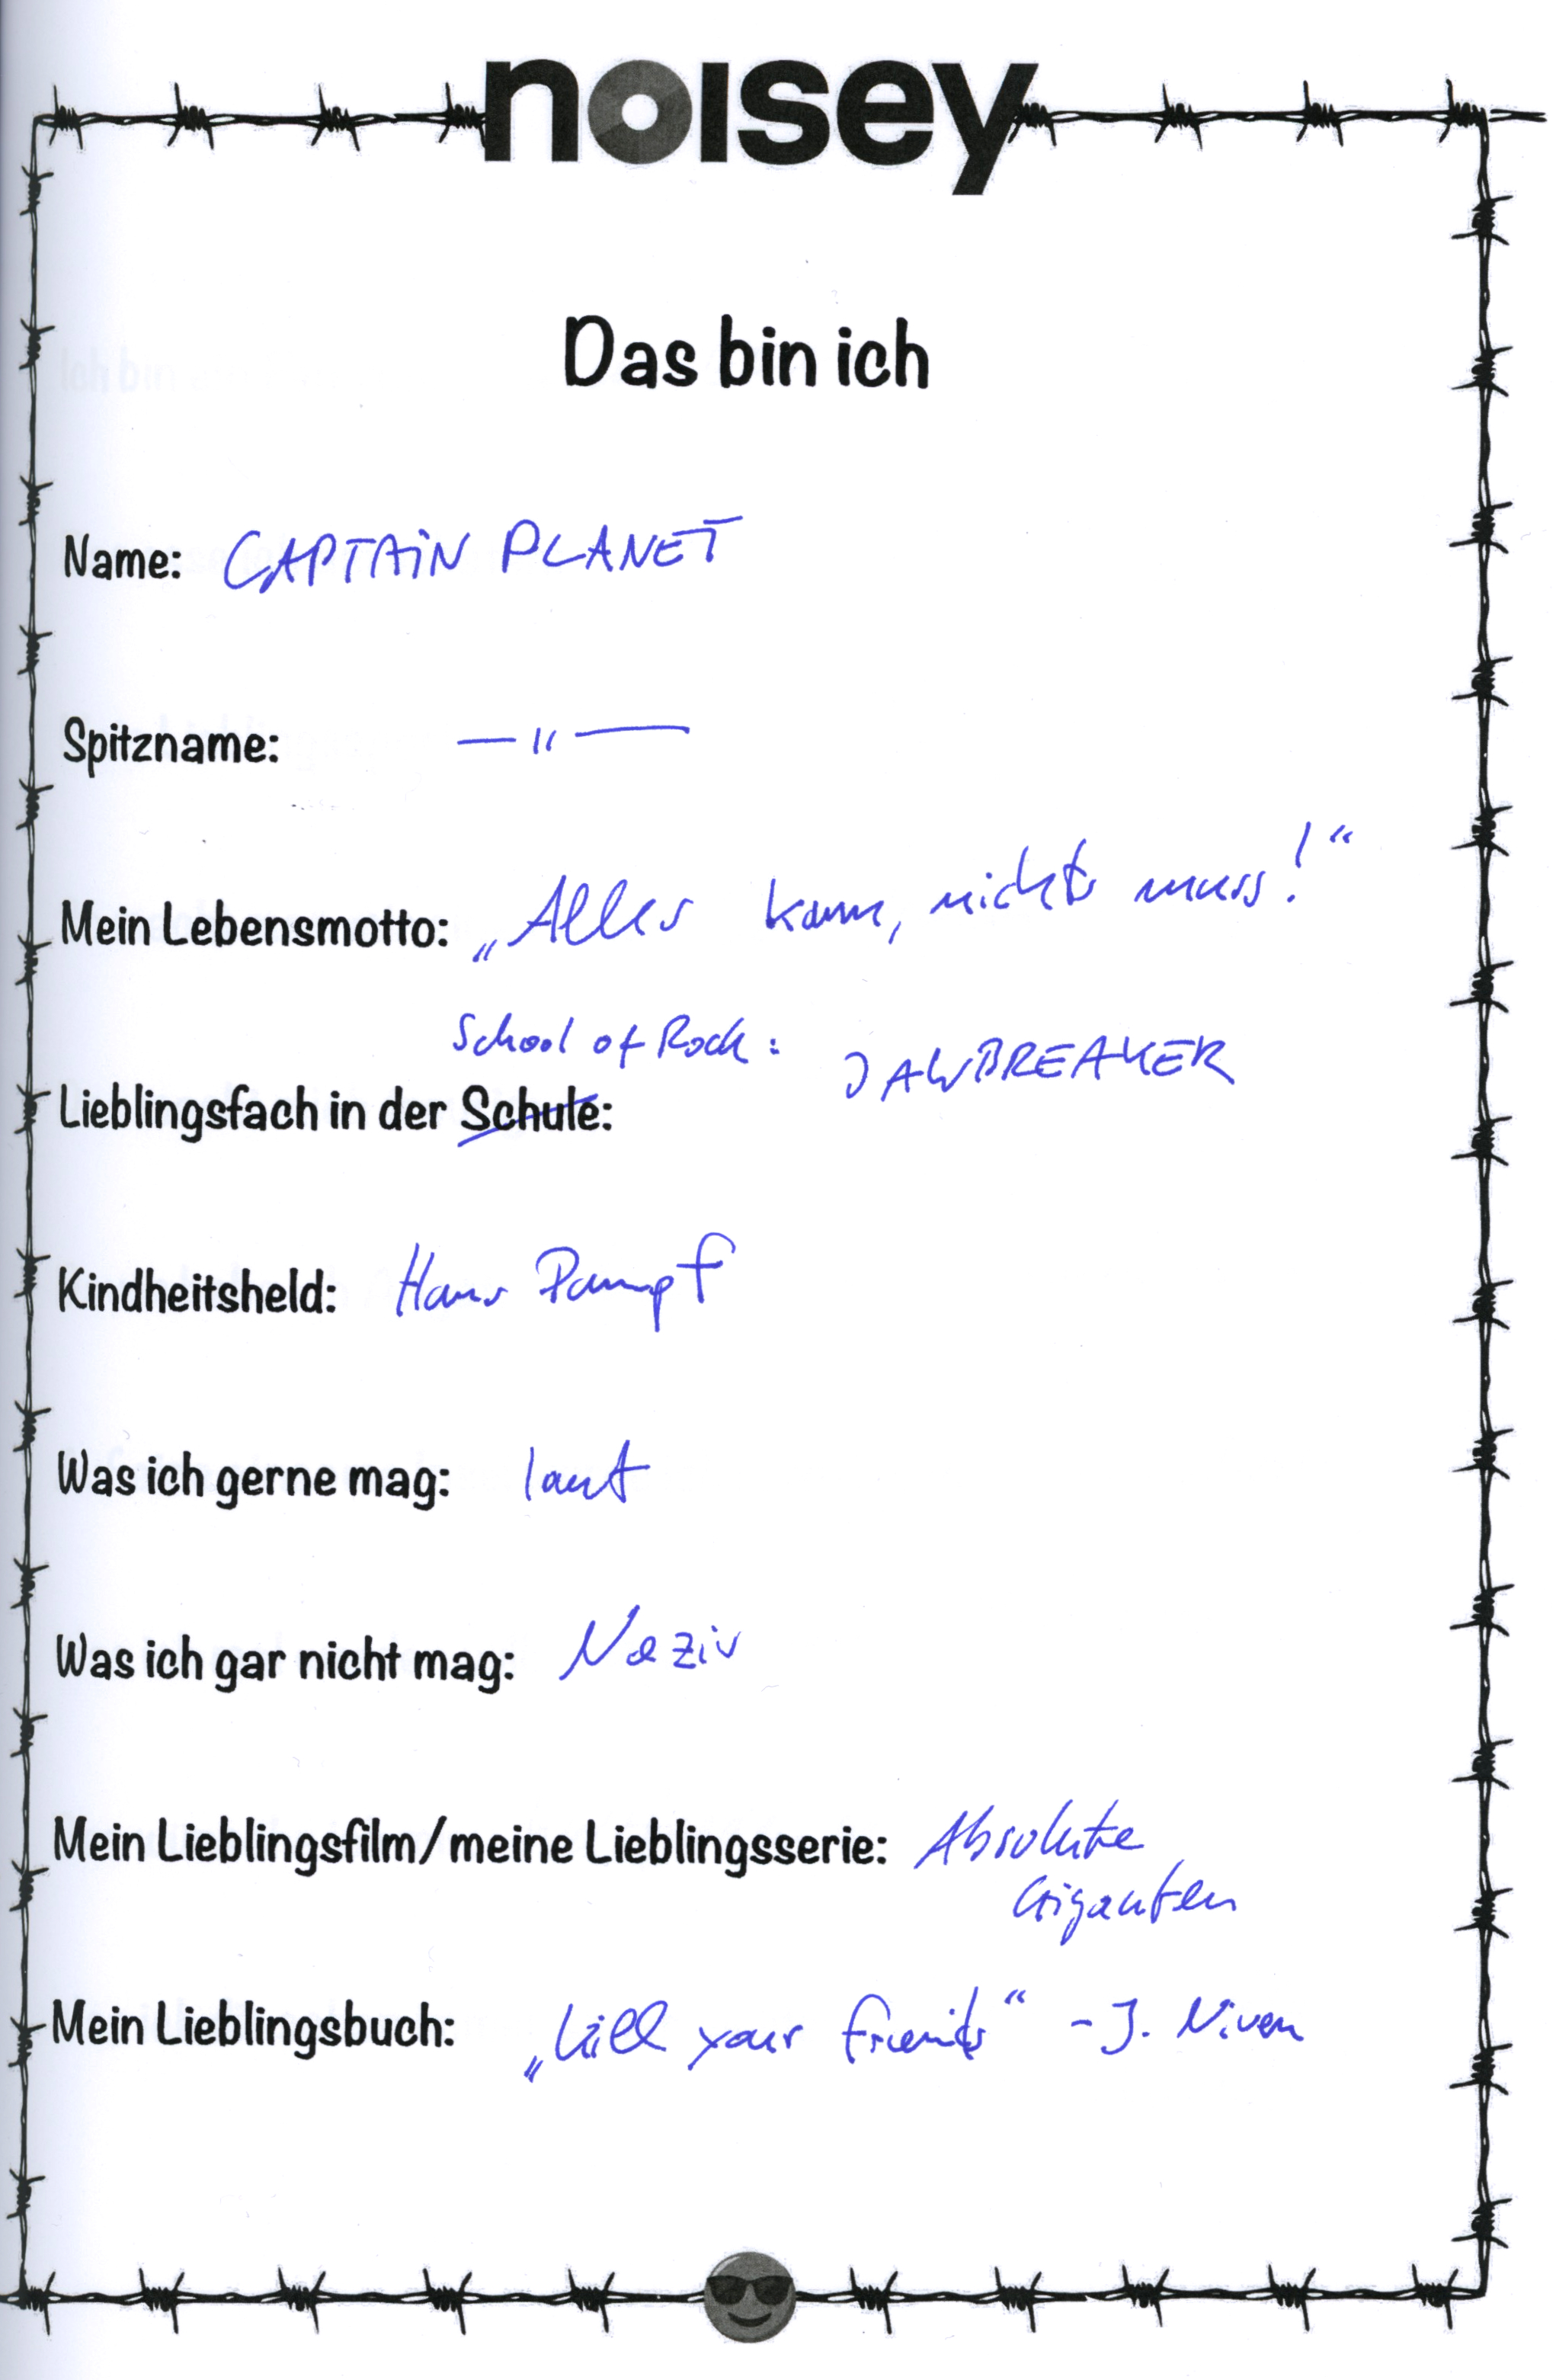 noisey
Das bin ich
Name: CAPTAiN PLANET
Spitzname: — " —
Mein Lebensmotto: „Alles kann, nichts muss!“
School of Rock: JAWBREAKER
Lieblingsfach in der Schule:
Kindheitsheld: Hans Pampf
Was ich gerne mag: laut
Was ich gar nicht mag: Nazis
Mein Lieblingsfilm/meine Lieblingsserie: Absolute
Giganten
Mein Lieblingsbuch: „Kill your friends“ - J. Niven